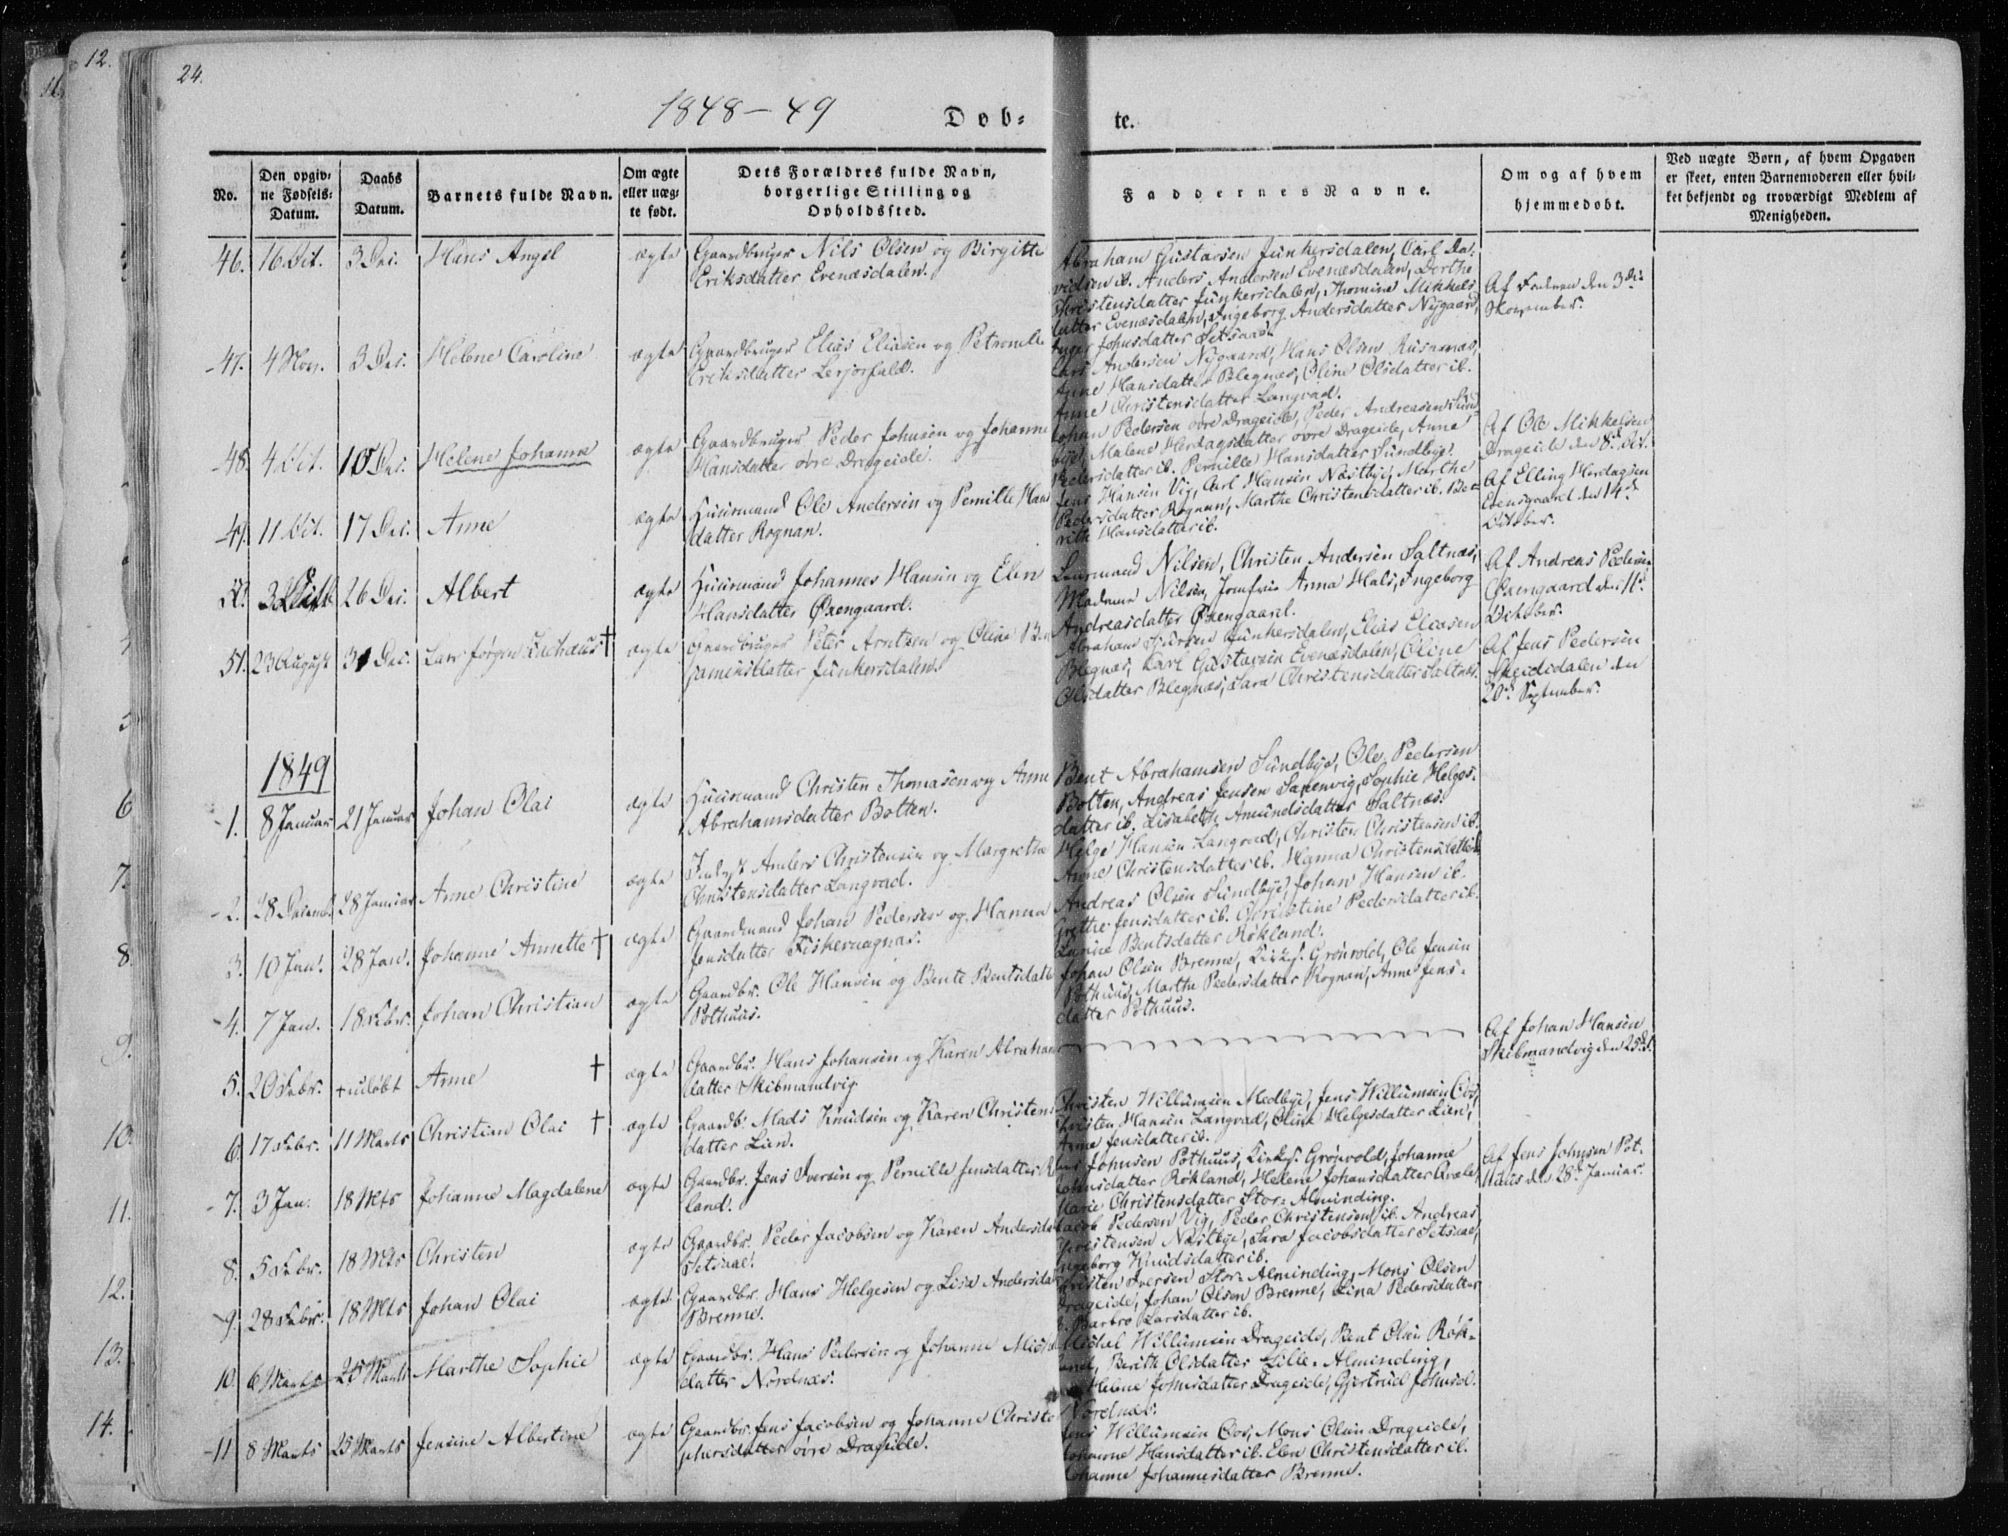 12.
24.
1848-49
Døb-
te.
No.
Den opgiv-
ne Fødsels-
Datum.
Daabs
Datum.
Barnets fulde Navn.
Om ægte
eller uæg-
te født.
Dets Forældres fulde Navn,
borgerlige Stilling og
Opholdssted.
Faddernes Navne.
Om og af hvem
hjemmedøbt.
Ved uægte Børn, af hvem Opgaven
er skeet, enten Barnemoderen eller hvil-
ket bekjendt og troværdigt Medlem af
Menigheden.
46. 16 Oct. 3 Dec. Hans Angel ægte Gaardbruger Nils Olsen og Birgitte
Eriksdatter Evenæsdalen.
Abraham Gustavsen Junkersdalen, Carl Da-
vidsen ib. Anders Andersen Evenæsdalen, Dorthe
Christensdatter Junkersdalen, Thomine Mikkels
datter Evenæsdalen, Ingeborg Andersdatter Nygaard,
Inger Johnsdatter Setsaae.
Af Faderen den 3die
November.
47. 4 Nov. 3 Dec. Helene Caroline ægte Gaardbruger Elias Eliasen og Petronelle
Eriksdatter Lerjorfald.
Lars Andersen Nygaard, Hans Olsen Rusaanæs,
Anne Hansdatter Blegnæs, Oline Olsdatter ib.
Anne Christensdatter Langvad.
48. 4 Oct. 10 Dec. Helene Johanna ægte Gaardbruger Peder Johnsen og Johanne
Hansdatter øvre Drageide.
Johan Pedersen øvre Drageide, Peder Andreasen Sund
bye, Malene Herdagsdatter øvre Drageide, Anne
Pedersdatter ib. Pernille Hansdatter Sundbye.
Af Ole Mikkelsen
Drageide den 8de Oct.
49. 11 Oct. 17 Dec. Anne ægte Huusmand Ole Andersen og Pernille Hans
datter Rognan.
Jens Hansen Vig, Carl Hansen Næstbye, Marthe
Pedersdatter Rognan, Marthe Christensdatter ib. Be-
rith Hansdatter ib.
Af Elling Herdagsen
Evensgaard den 14de
October.
50. 26 Dec. Albert ægte Huusmand Johannes Hansen og Elen
Hansdatter Øxengaard.
Leusmand Nilsen, Christen Andersen Saltnæs,
Madame Nilsen, Jomfrue Anna Hals, Ingeborg
Andreasdatter Øxengaard.
Af Andreas Pedersen
Øxengaard den 11te
October.
51. 23 August 31 Dec. Lars Jørgen Zachæus † ægte Gaardbruger Peter Arntsen og Oline Ben
jaminsdatter Junkersdalen.
Abraham Junkersdalen, Elias Eliasen
Blegnæs, Karl Gustavsen Evenæsdalen, Oline
Olsdatter Blegnæs, Sara Christensdatter Saltnæs.
Af Jens Pedersen
Skeididalen den
20de September.
1849
1. 8 Januar 21 Januar Johan Olai ægte Huusmand Christen Thomasen og Anne
Abrahamsdatter Botten.
Bent Abrahamsen Sundbye, Ole Pedersen
Botten, Andreas Jensen Saxenvig, Sophie Helges-
datter ib. Lisabeth Amundsdatter Saltnæs.
2. 28 Decemb. 28 Januar Anne Christine ægte Anders Christensen og Margrethe
Christensdatter Langvad.
Helge Hansen Langvad, Christen Christensen ib.
Anne Christensdatter ib. Hanna Christensdatter ib.
3. 10 Jan. 28 Jan. Johanne Annette † ægte Gaardmand Johan Pedersen og Hanna
Jensdatter Fiskervagnæs.
Andreas Olsen Sundbye, Johan Hansen ib.
Grethe Jensdatter ib. Christine Pedersdatter ib.
Bentsdatter Røkland.
4. 7 Jan. 18 Febr. Johan Christian ægte Gaardbr. Ole Hansen og Bente Bentsdatter
Pothuus.
Johan Olsen Brenne, Kirks. Grønvold, Ole Jensen
Pothuus, Marthe Pedersdatter Rognan, Anne Jens-
datter Pothuus.
5. 20 Febr. + udøbt Anne † ægte Gaardbr. Hans Johansen og Karen Abrahams
datter Skibmandvig
Af Johan Hansen
Skibmandvig den 25de
6. 17 Febr. 11 Marts Christian Olai † ægte Gaardb. Mads Knudsen og Karen Christens
datter Lien.
Christen Willumsen Medbye, Jens Willumsen Oos,
Christen Hansen Langvad, Oline Helgesdatter Lien,
Anne Jensdatter ib.
7. 3 Jan. 18 Mts Johanne Magdalene ægte Gaardbr. Jens Iversen og Pernille Jensdatter Rø
land.
Jens Johnsen Pothuus, Kirks. Grønvold, Johanne
Johnsdatter Røkland, Helene Johansdatter Qvæle,
Marie Christensdatter Stor-Alminding.
Af Jens Johnsen Pot-
huus den 28de Januar.
8. 5 Febr. 18 Mts Christen ægte Gaardbr. Peder Jacobsen og Karen Andersdat
Setsaae.
Jacob Pedersen Vig, Peder Christensen ib. Andreas
Christensen Næstbye, Sara Jacobsdatter Setsaae,
Ingeborg Knudsdatter ib.
9. 28 Febr. 18 Mts Johan Olai ægte Gaardbr. Hans Helgesen og Lisa Andersdat
Brenne.
Christen Iversen Stor-Alminding, Mons Olsen
Drageide, Johan Olsen Brenne, Lina Pedersdatter
ib. Barbro Larsdatter ib.
10. 6 Marts 25 Marts Marthe Sophie ægte Gaardbr. Hans Pedersen og Johanne Michel
datter Nordnæs.
Michal Willumsen Drageide, Bent Olsen Røk-
land, Berith Olsdatter Lille-Alminding,
Helene Johnsdatter Drageide, Gjertrud Johnsd.
Nordnæs.
11 8 Marts 25 Marts Jensine Albertine ægte Gaardbr. Jens Jacobsen og Johanne Christo
phersdatter øvre Drageide.
Jens Willumsen Oos, Mons Olsen Drageide,
Johanne Hansdatter ib. Elen Christensdatter ib.
Johanne Johannesdatter Brenne.
6
7.
8.
9.
10.
11.
12.
13.
14.